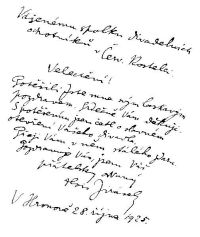 Váženému spolku divadelních
ochotníků v Čes. Kostelci.
Velectění!
Potěšili jste mne svým laskavým
pozdravem. Srdečně Vám děkuji.
S potěšením jsem četl o slavném
otevření Vašeho divadla.
Přeji Vám v něm stálého zdaru.
Pozdravuje Vás, jsem Váš
přátelsky oddaný
Alois Jirásek
V Hronově 28. října 1925.